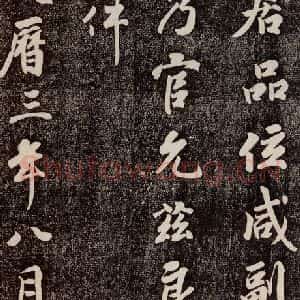 君品位咸副
乃官允兹良
件
曆三年八月
shufawang.CN